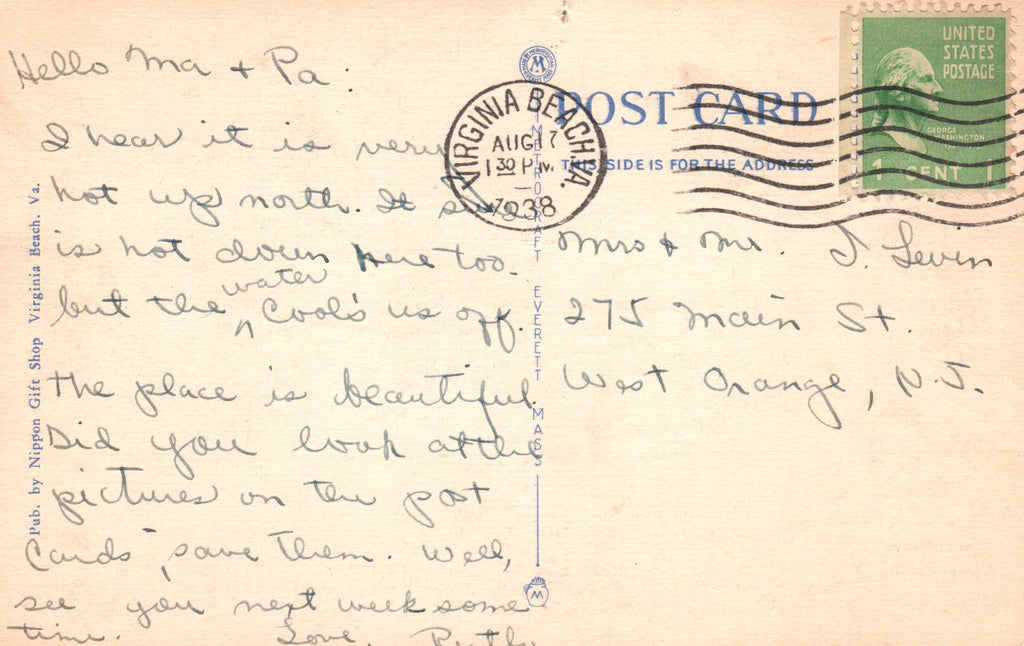 Hello Ma + Pa.
I hear it is very
hot up north. It sure
is hot down here too.
but the water cool's us off.
The place is beautiful.
Did you look at the
pictures on the post
cards, save them. Well,
see you next week some
time. Love,
POST CARD
THIS SIDE IS FOR THE ADDRESS
VIRGINIA BEACH, VA.
AUG 17
1 30 P.M.
1938
UNITED
STATES
POSTAGE
GEORGE
WASHINGTON
1 CENT 1
Mrs & Mr. J. Levin
275 Main St.
West Orange, N.J.
Pub. by Nippon Gift Shop Virginia Beach, Va.
METROCRAFT EVERETT MASS
W
W